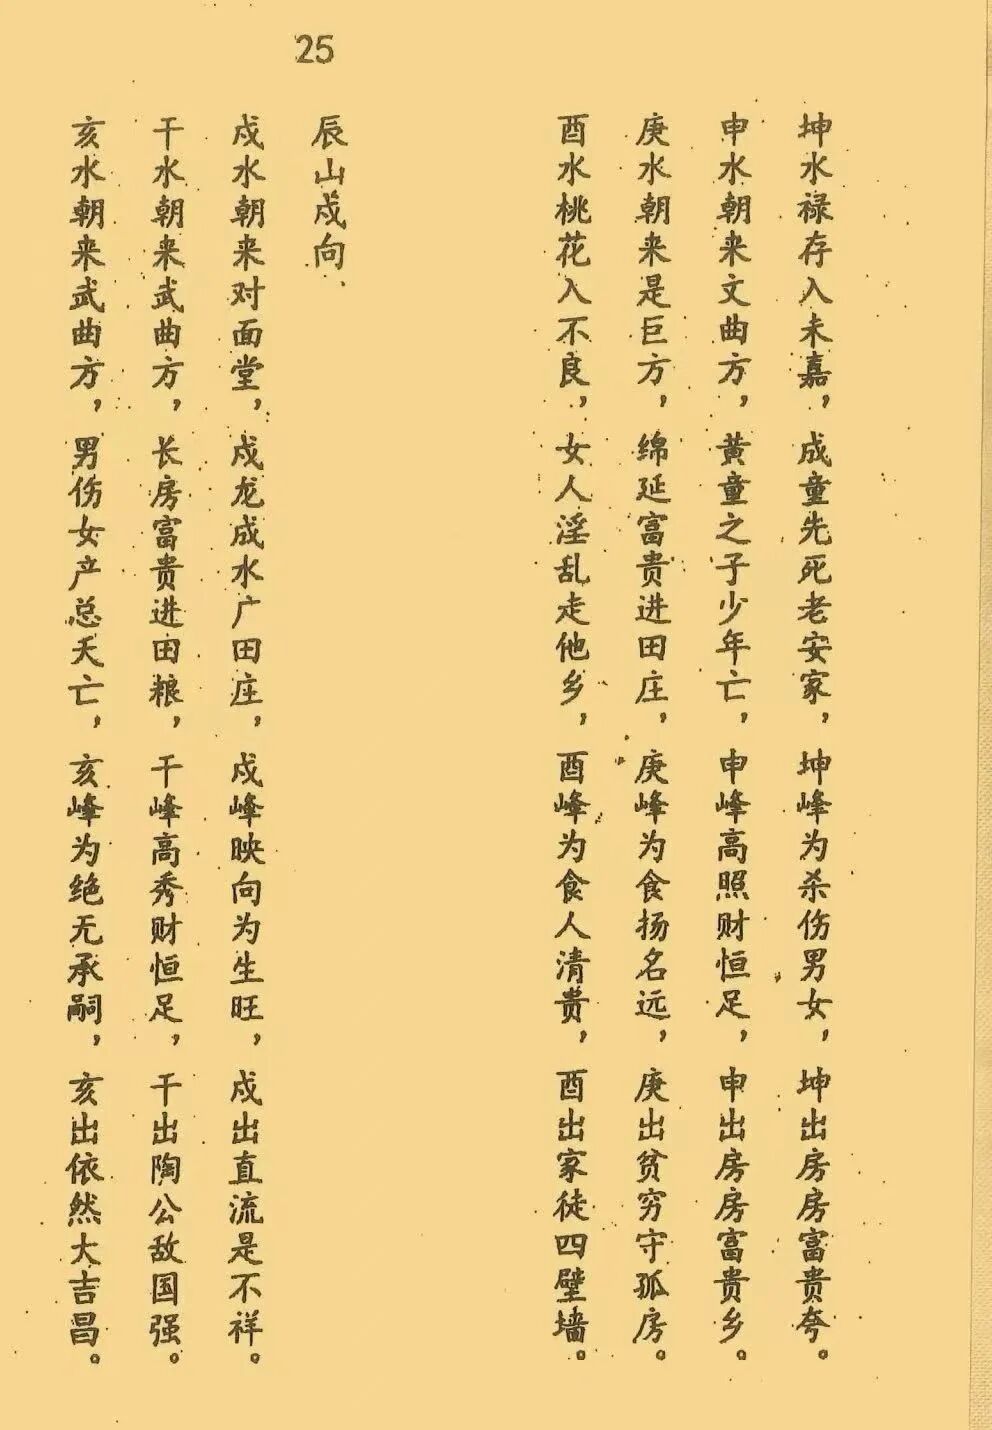 25
坤水禄存入未嘉，成童先死老安家，坤峰为杀伤男女，坤出房房富贵夸。
申水朝来文曲方，黄童之子少年亡，申峰高照财恒足，申出房房富贵乡。
庚水朝来是巨方，绵延富贵进田庄，庚峰为食扬名远，庚出贫穷守孤房。
酉水桃花入不良，女人淫乱走他乡，酉峰为食人清贵，酉出家徒四壁墙。
辰山戍向
戍水朝来对面堂，戍龙成水广田庄，戍峰映向为生旺，戍出直流是不祥。
干水朝来武曲方，长房富贵进田粮，干峰高秀财恒足，干出陶公敌国强。
亥水朝来武曲方，男伤女产总夭亡，亥峰为绝无承嗣，亥出依然大吉昌。